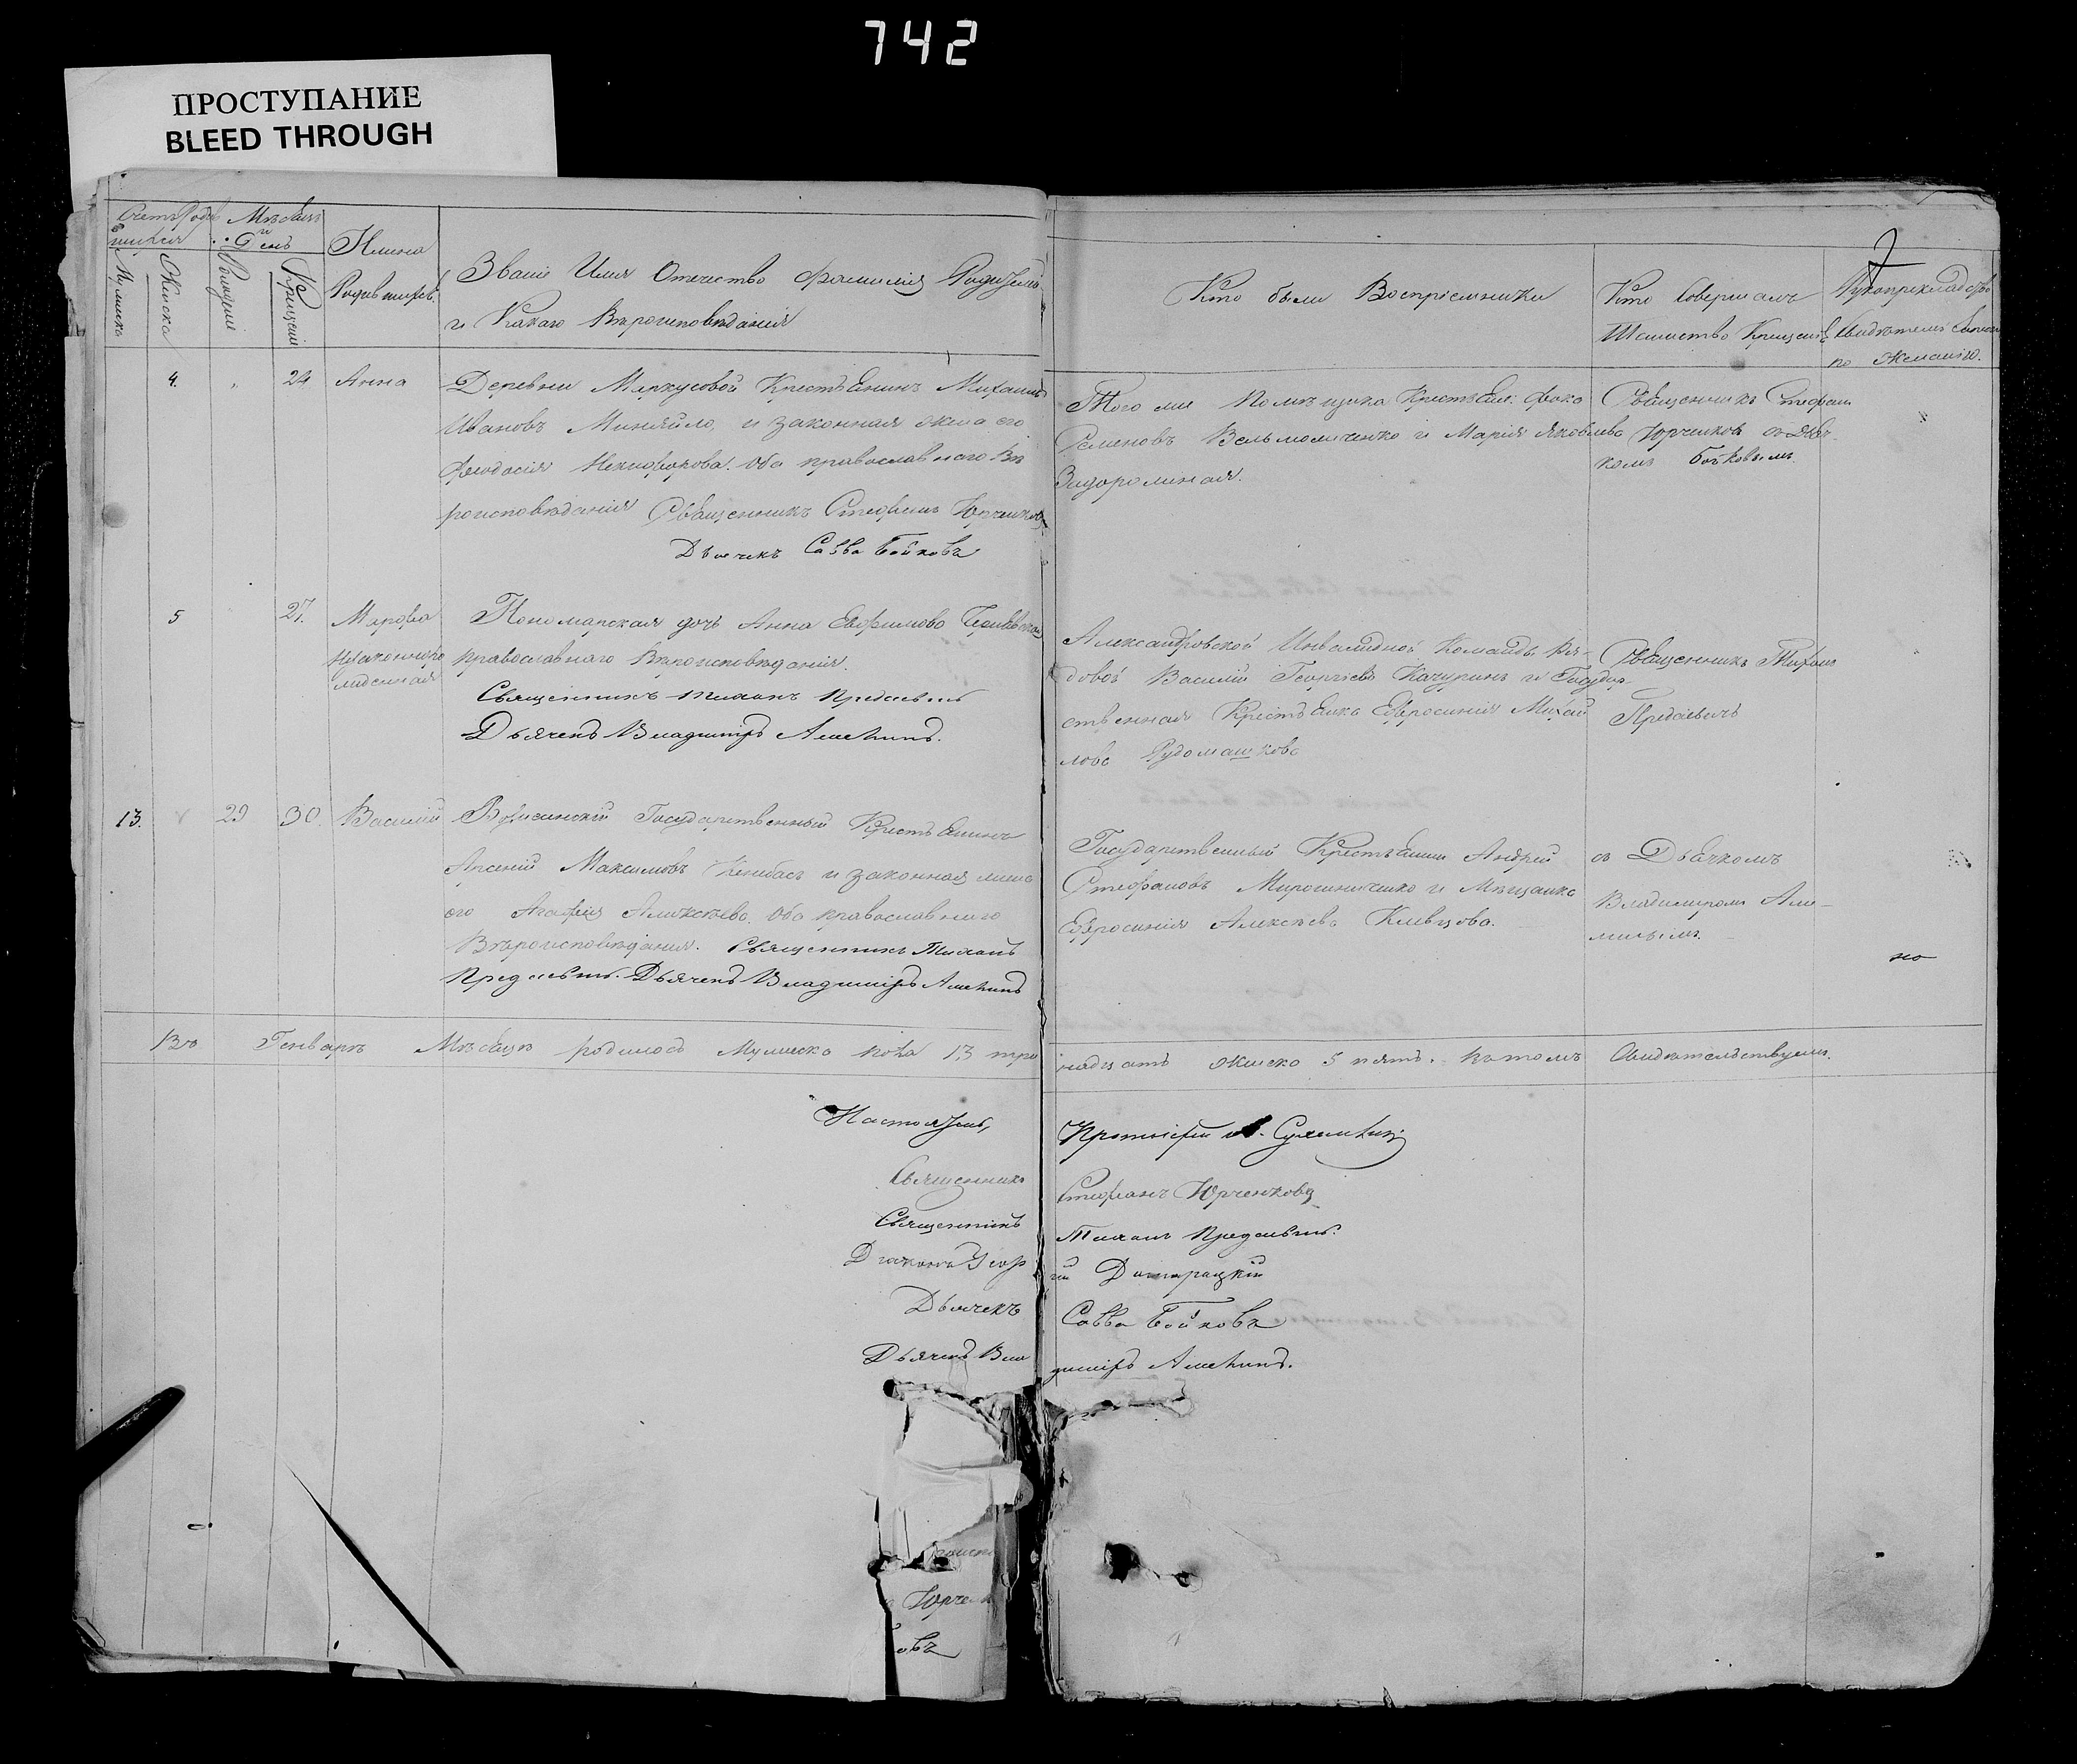 742
ПРОСТУПАНИЕ
BLEED THROUGH
Счетъ Роди
вшихся
Мѣсяцъ
и
День
Имена
Родившихся
Мужеска
Женска
Рожденія
Крещенія
Званіе Имя Отечество Фамилія Родителей
и Какаго Вѣроисповѣданія
Кто были Воспріемники
Кто Совершалъ
Таинство Крещенія
Рукоприкладство
Свидѣтелей Записи
по Желанію.
4. 24 Анна
Деревни Маркусовой Крестьянинъ Михаилъ
Ивановъ Миняйло, и законная жена его
Феодосія Никифорова. Оба православнаго Вѣ
роисповѣданія Священникъ Стефанъ Юрченковъ
Дьячекъ Савва Бойковъ
Того же Помѣщика Крестьян: Фока
Семеновъ Вельможченко и Марія Яковлева
Задорожная.
Священникъ Стефан
Юрченков съ Дьяч-
комъ Бойковымъ.
5 27. Марфа
Незаконнорож
жденная
Пономарская дочь Анна Евфимова
православнаго Вѣроисповѣданія.
Священникъ Тихонъ
Дьячекъ Владимиръ
Александровской Инвалидной Команды Ря-
довой Василій Георгіевъ Качуринъ и Государ-
ственная Крестьянка Евфросинія Михай
лова Рудомашкова
Священникъ Тихонъ
13. 29 30. Василій
Государственный Крестьянинъ
Арсеній Максимовъ и законная жена
его Агафія Алексѣева. Оба православнаго
Вѣроисповѣданія. Священникъ Тихонъ
Дьячекъ Владимиръ
Государственный Крестьянин Андрей
Стефановъ Мирошниченко и Мѣщанка
Евфросинія Алексѣева Кивцова.
съ Дьячкомъ
Владимиром
но
Въ Генварѣ Мѣсяцѣ родилось Мужеска пола 13 три
надцать Женска 5 пять. въ томъ Свидѣтельствуемъ.
Настоятель,
Протоіерей
Священникъ
Стефанъ Юрченковъ
Священникъ
Тихонъ
Діаконъ Геор
гій
Дьячекъ
Савва Бойковъ
Дьячекъ Вла
димиръ
Юрчен
овъ